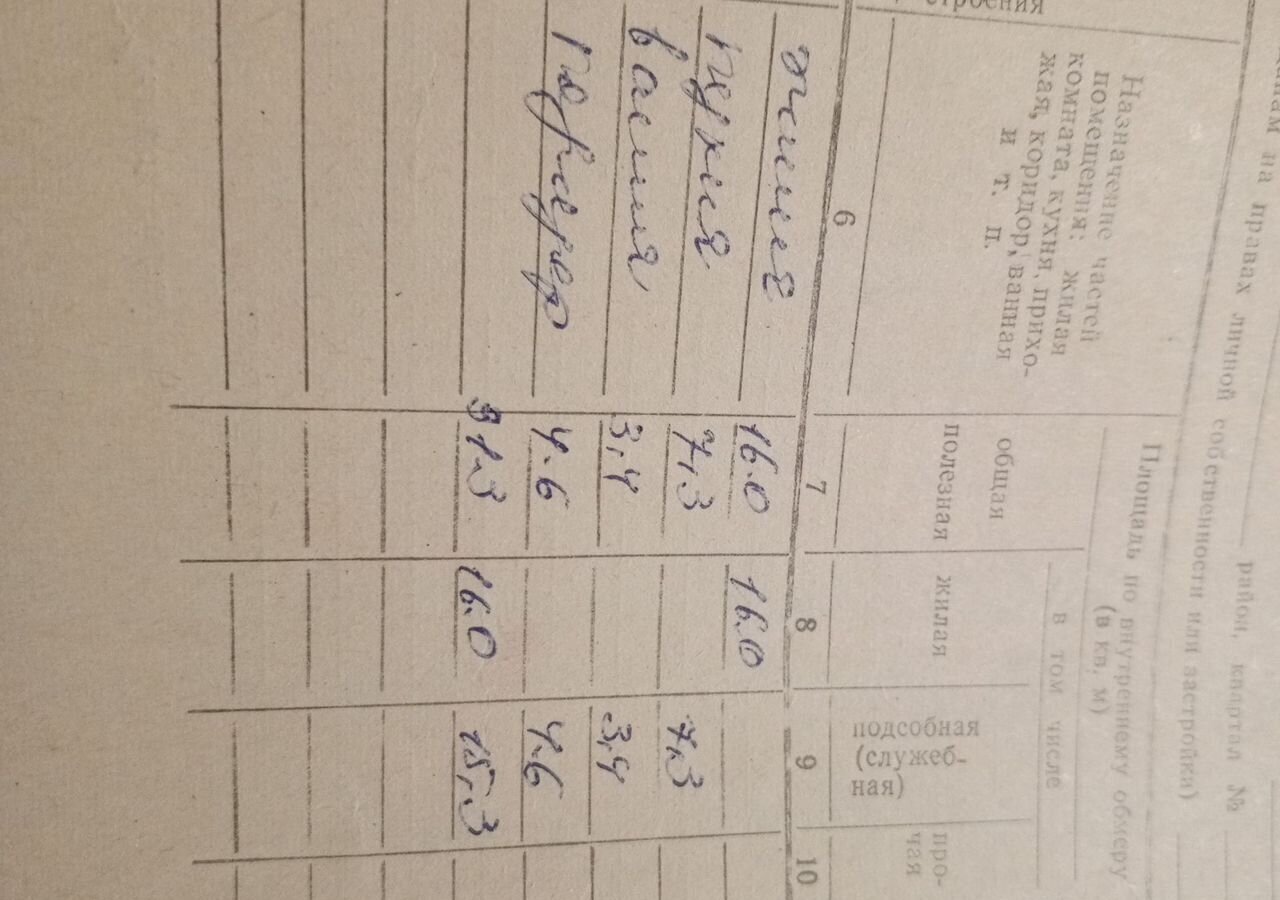 правах личной собственности или застройки)
район, квартал №
строения
Назначение частей
помещения: жилая
комната, кухня, прихо-
жая, коридор, ванная
и т. п.
Площадь по внутреннему обмеру
(в кв. м)
общая
полезная
в том числе
жилая
подсобная
(служеб-
ная)
про-
чая
6 7 8 9 10
жилая 16.0 16.0
кухня 7,3 7,3
ванная 3,4 3,4
коридор 4.6 4.6
31.3 16.0 15,3